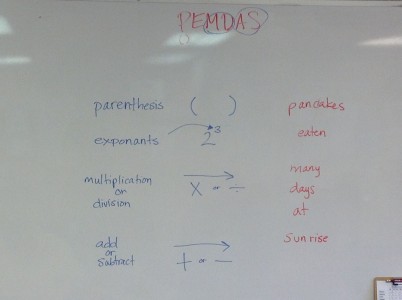 PEMDAS
parenthesis ( ) pancakes
exponants 2³ eaten
multiplication many
or × or ÷ days
division at
add sunrise
or
subtract + or −